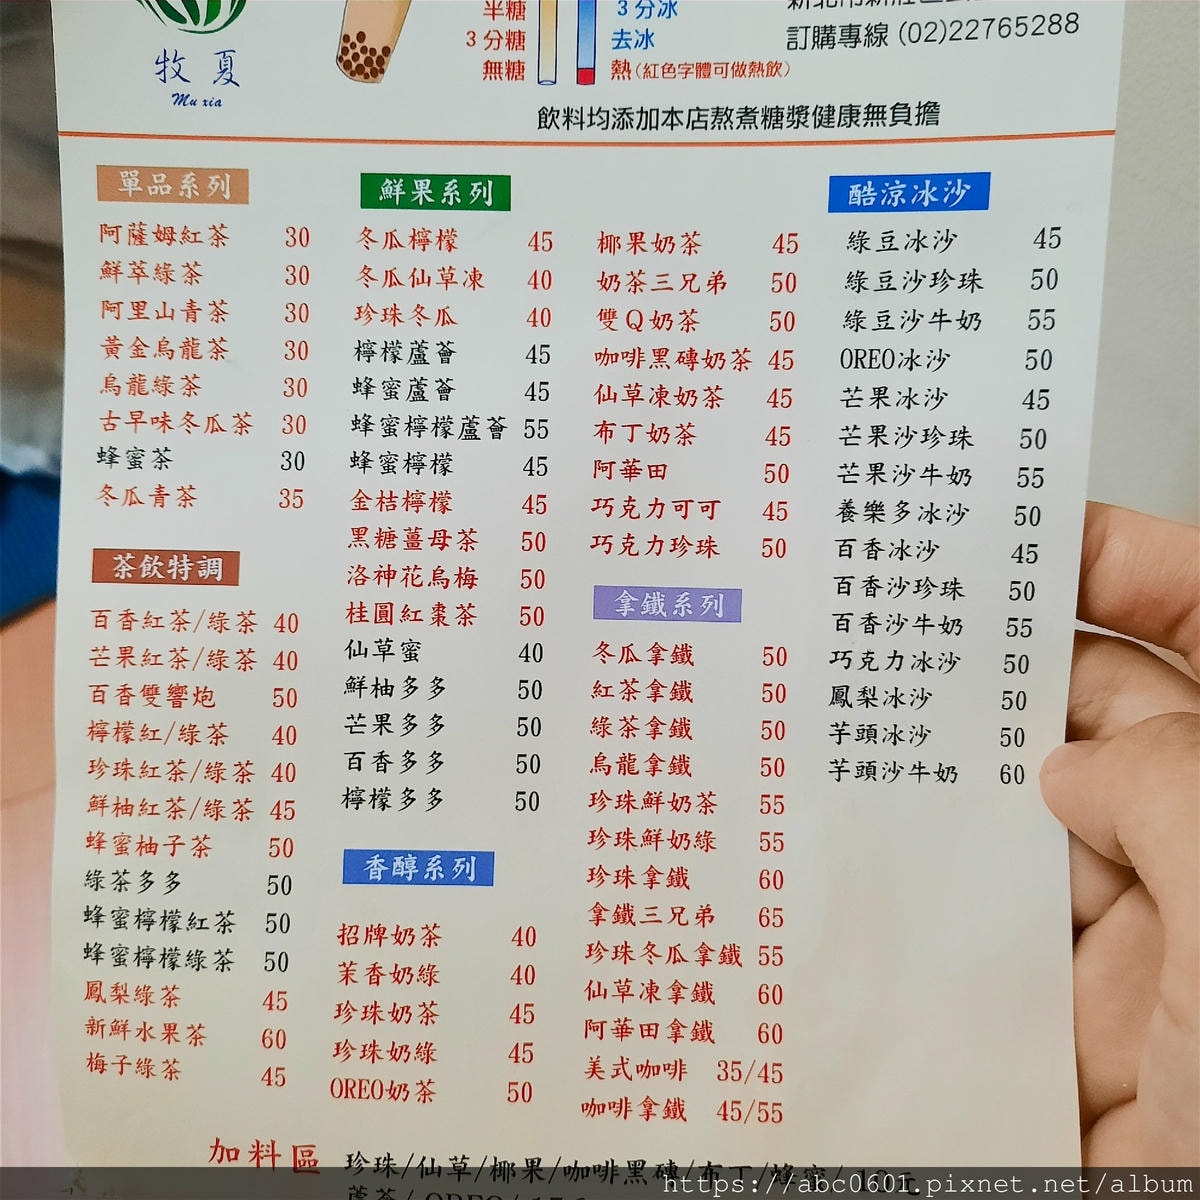 半糖
3分糖
無糖
3分冰
去冰
熱(紅色字體可做熱飲)
訂購專線 (02)22765288
牧夏
Mu xia
飲料均添加本店熬煮糖漿健康無負擔
單品系列
阿薩姆紅茶 30
鮮萃綠茶 30
阿里山青茶 30
黃金烏龍茶 30
烏龍綠茶 30
古早味冬瓜茶 30
蜂蜜茶 30
冬瓜青茶 35
茶飲特調
百香紅茶/綠茶 40
芒果紅茶/綠茶 40
百香雙響炮 50
檸檬紅/綠茶 40
珍珠紅茶/綠茶 40
鮮柚紅茶/綠茶 45
蜂蜜柚子茶 50
綠茶多多 50
蜂蜜檸檬紅茶 50
蜂蜜檸檬綠茶 50
鳳梨綠茶 45
新鮮水果茶 60
梅子綠茶 45
鮮果系列
冬瓜檸檬 45
冬瓜仙草凍 40
珍珠冬瓜 40
檸檬蘆薈 45
蜂蜜蘆薈 45
蜂蜜檸檬蘆薈 55
蜂蜜檸檬 45
金桔檸檬 45
黑糖薑母茶 50
洛神花烏梅 50
桂圓紅棗茶 50
仙草蜜 40
鮮柚多多 50
芒果多多 50
百香多多 50
檸檬多多 50
香醇系列
招牌奶茶 40
茉香奶綠 40
珍珠奶茶 45
珍珠奶綠 45
OREO奶茶 50
椰果奶茶 45
奶茶三兄弟 50
雙Q奶茶 50
咖啡黑磚奶茶 45
仙草凍奶茶 45
布丁奶茶 45
阿華田 50
巧克力可可 45
巧克力珍珠 50
拿鐵系列
冬瓜拿鐵 50
紅茶拿鐵 50
綠茶拿鐵 50
烏龍拿鐵 50
珍珠鮮奶茶 55
珍珠鮮奶綠 55
珍珠拿鐵 60
拿鐵三兄弟 65
珍珠冬瓜拿鐵 55
仙草凍拿鐵 60
阿華田拿鐵 60
美式咖啡 35/45
咖啡拿鐵 45/55
酷涼冰沙
綠豆冰沙 45
綠豆沙珍珠 50
綠豆沙牛奶 55
OREO冰沙 50
芒果冰沙 45
芒果沙珍珠 50
芒果沙牛奶 55
養樂多冰沙 50
百香冰沙 45
百香沙珍珠 50
百香沙牛奶 55
巧克力冰沙 50
鳳梨冰沙 50
芋頭冰沙 50
芋頭沙牛奶 60
加料區
珍珠/仙草/椰果/咖啡黑磚/布丁/蜂蜜/10元
https://abc0601.pixnet.net/album